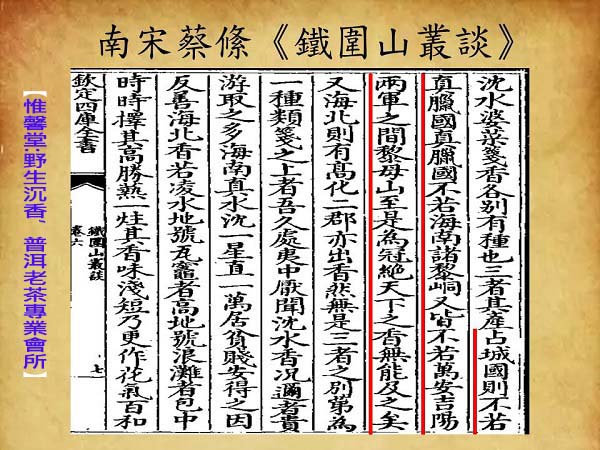 南宋蔡絛《鐵圍山叢談》
沈水婆菜箋香各別有種也三者其產占城國則不若
真臘國真臘國不若海南諸黎峒又皆不若萬安吉陽
兩軍之間黎母山至是為冠絕天下之香無能及之矣
又海北則有高化二郡亦出香然無是三者之別第為
一種類箋之上者吾久處夷中厭聞沈水香況邇者貴
游取之多海南真水沈一星直一萬居貧賤安得之因
反善海北香若凌水地號瓦竈者高地號浪灘者包中
時時擇其高勝爇一炷其香味淺短乃更作花氣百和
欽定四庫全書
鐵圍山叢談
卷六
七
【惟馨堂:野生沉香、普洱老茶專業會所】